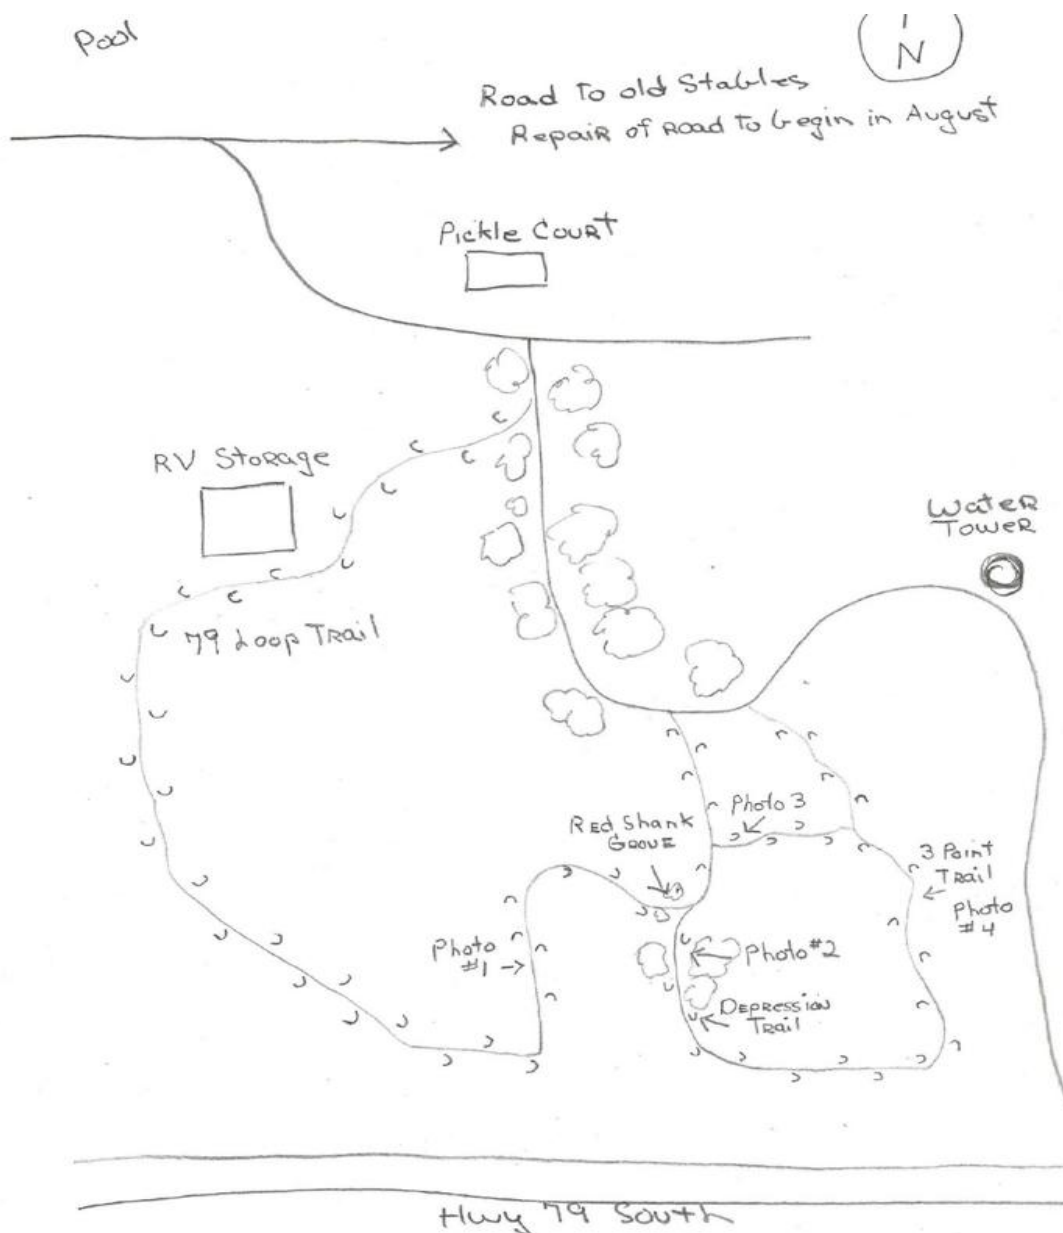 Pool
N
Road To old Stables
Repair of Road To begin in August
Pickle Court
RV Storage
Water
Tower
79 Loop Trail
Photo 3
Red Shank
Grove
3 Point
Trail
Photo
#4
Photo
#1
Photo #2
Depression
Trail
Hwy 79 South